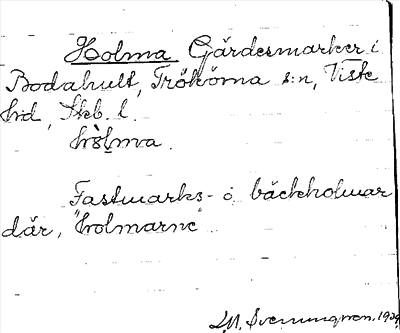 Holma Gärdesmarker i
Bodahult, Trökörna s:n, Viste
hd, Skb. l.
hòlma.
Fastmarks- o. bäckholmar
där, "holmarne"
L.M. Svenungsson. 1929